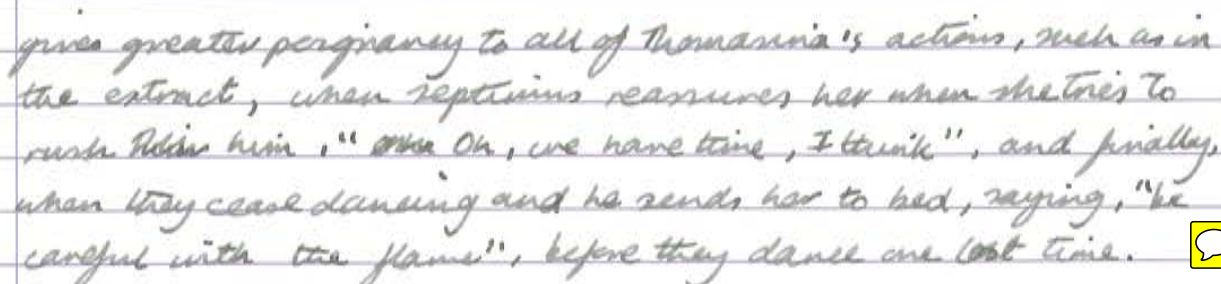 gives greater poignancy to all of Thomasina's actions, such as in
the extract, when Septimus reassures her when she tries to
rush him, "Oh, we have time, I think", and finally,
when they cease dancing and he sends her to bed, saying, "be
careful with the flame", before they dance one last time.